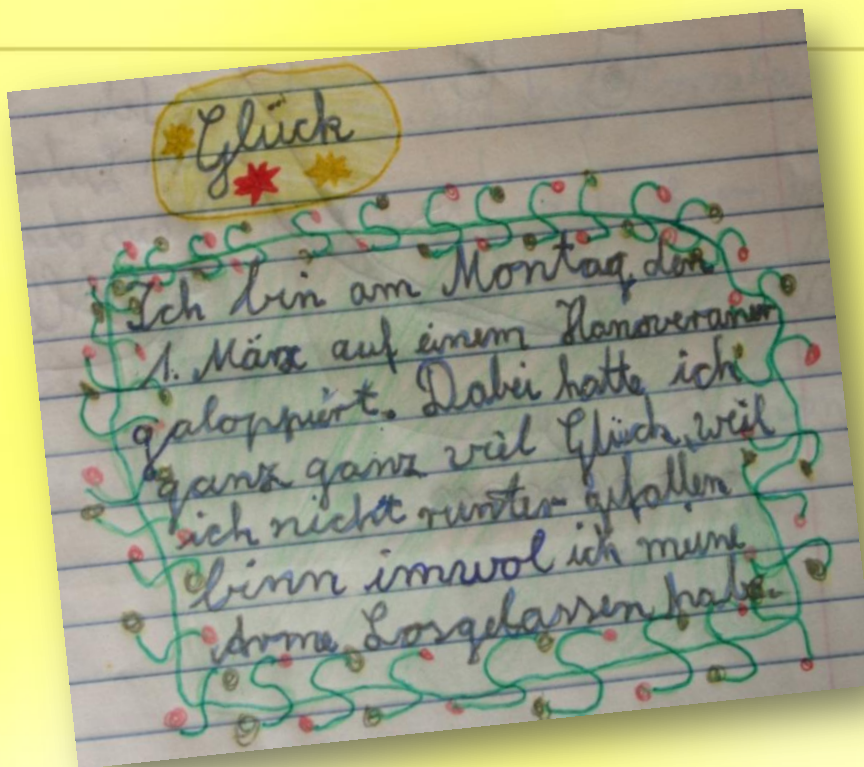 Glück
Ich bin am Montag, den
1. März auf einem Hanoveraner
galoppiert. Dabei hatte ich
ganz ganz viel Glück, weil
ich nicht runter gefallen
binn imwol ich meine
Arme Losgelassen habe.